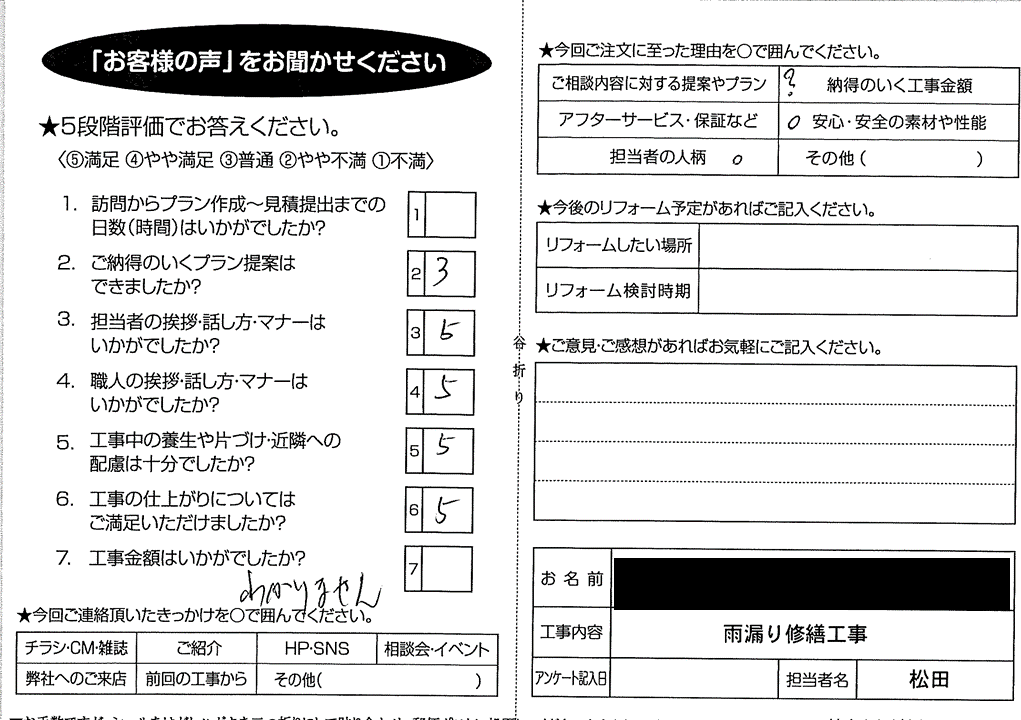 「お客様の声」をお聞かせください
★5段階評価でお答えください。
〈⑤満足 ④やや満足 ③普通 ②やや不満 ①不満〉
1. 訪問からプラン作成〜見積提出までの
日数(時間)はいかがでしたか?
1
2. ご納得のいくプラン提案は
できましたか?
2 3
3. 担当者の挨拶・話し方・マナーは
いかがでしたか?
3 5
4. 職人の挨拶・話し方・マナーは
いかがでしたか?
4 5
5. 工事中の養生や片づけ・近隣への
配慮は十分でしたか?
5 5
6. 工事の仕上がりについては
ご満足いただけましたか?
6 5
7. 工事金額はいかがでしたか?
7
わかりません
★今回ご連絡頂いたきっかけを〇で囲んでください。
チラシ・CM・雑誌 ご紹介 HP・SNS 相談会・イベント
弊社へのご来店 前回の工事から その他( )
谷折り
★今回ご注文に至った理由を〇で囲んでください。
ご相談内容に対する提案やプラン ? 納得のいく工事金額
アフターサービス・保証など 〇 安心・安全の素材や性能
担当者の人柄 〇 その他( )
★今後のリフォーム予定があればご記入ください。
リフォームしたい場所
リフォーム検討時期
★ご意見・ご感想があればお気軽にご記入ください。
お名前
工事内容 雨漏り修繕工事
アンケート記入日 担当者名 松田